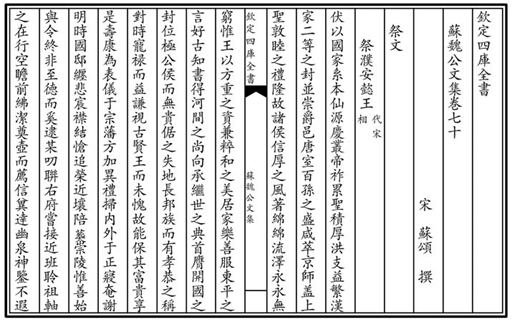 欽定四庫全書
蘇魏公文集卷七十
宋 蘇頌 撰
祭文
祭濮安懿王 代宋相
伏以國家系本仙源慶叢帝祚累聖積厚洪支益繁漢
家二等之封並崇爵邑唐室百孫之盛咸萃京師蓋上
聖敦睦之禮隆故諸侯信厚之風著綿綿流澤永永無
欽定四庫全書
蘇魏公文集
窮惟王以方重之資兼粹和之美居家樂善服東平之
言好古知書得河間之尚向承繼世之典首膺開國之
封位極公侯而無貴倨之失地長邦族而有孝恭之稱
對時寵祿而益謙視古賢王而未愧故能保其富貴享
是壽康為表儀于宗藩方加異禮掃內外于正寢奄謝
明時國邸纏悲宸襟結愴追榮近壤陪葬崇陵惟善始
與令終非至德而奚逮某叨聯右府嘗接近班聆祖軸
之在行空瞻前紼潔奠壺而薦信冀達幽泉神鑒不遐